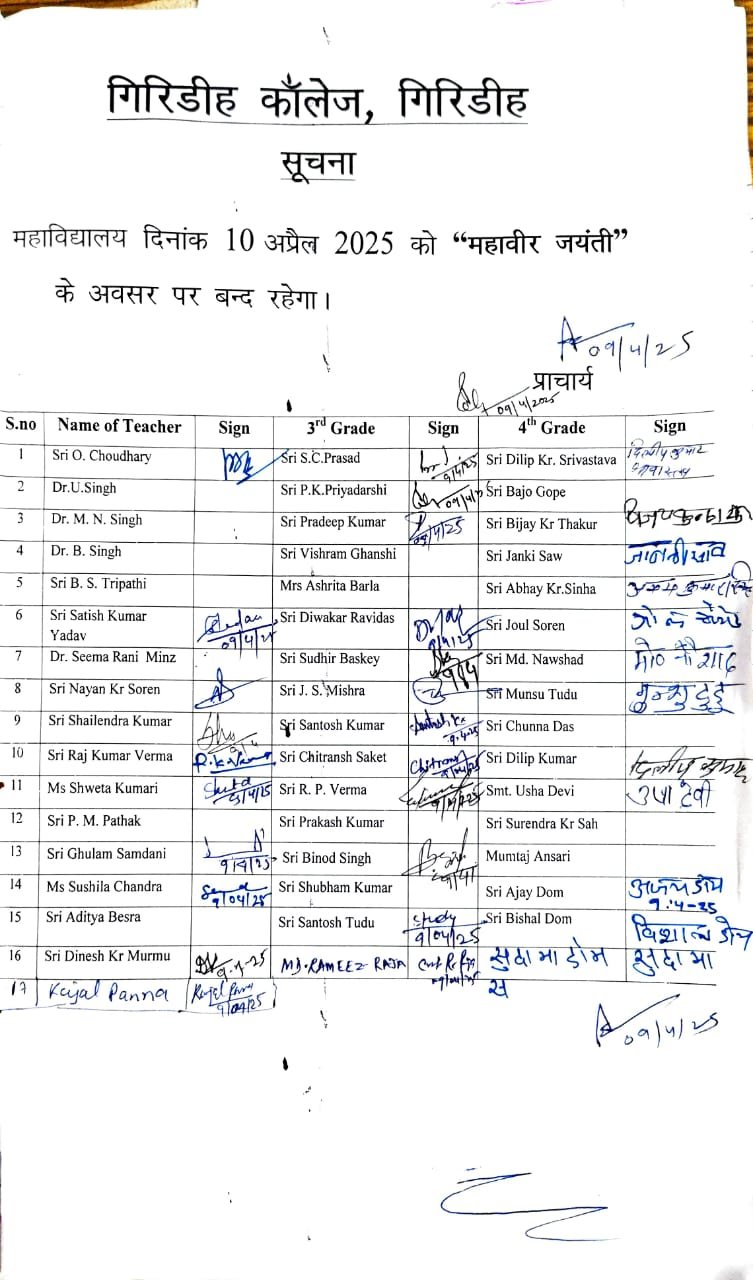 गिरिडीह कॉलेज, गिरिडीह
सूचना
महाविद्यालय दिनांक 10 अप्रैल 2025 को “महावीर जयंती”
के अवसर पर बन्द रहेगा।
09/4/25
प्राचार्य
09/4/2025
S.no Name of Teacher Sign 3rd Grade Sign 4th Grade Sign
1 Sri O. Choudhary Sri S.C.Prasad 9/4/25 Sri Dilip Kr. Srivastava दिलीप कुमार
2 Dr.U.Singh Sri P.K.Priyadarshi Sri Bajo Gope
3 Dr. M. N. Singh Sri Pradeep Kumar 09/4/25 Sri Bijay Kr Thakur
4 Dr. B. Singh Sri Vishram Ghanshi Sri Janki Saw जानकी साव
5 Sri B. S. Tripathi Mrs Ashrita Barla Sri Abhay Kr.Sinha
6 Sri Satish Kumar Yadav 09/4/25 Sri Diwakar Ravidas 9/4/25 Sri Joul Soren
7 Dr. Seema Rani Minz Sri Sudhir Baskey 9/4 Sri Md. Nawshad
8 Sri Nayan Kr Soren Sri J. S. Mishra Sri Munsu Tudu मुन्शु टुडू
9 Sri Shailendra Kumar 9/4 Sri Santosh Kumar 9.4.25 Sri Chunna Das
10 Sri Raj Kumar Verma R.K Verma Sri Chitransh Saket Chitransh 9/04/25 Sri Dilip Kumar दिलीप कुमार
11 Ms Shweta Kumari 9/4/25 Sri R. P. Verma Smt. Usha Devi उषा देवी
12 Sri P. M. Pathak Sri Prakash Kumar Sri Surendra Kr Sah
13 Sri Ghulam Samdani 9/4/25 Sri Binod Singh Mumtaj Ansari
14 Ms Sushila Chandra 9/04/25 Sri Shubham Kumar Sri Ajay Dom अजय डोम 9.4-25
15 Sri Aditya Besra Sri Santosh Tudu 9/04/25 Sri Bishal Dom विशाल डोम
16 Sri Dinesh Kr Murmu 9.4.25 MD. RAMEEZ RAJA 09/04/25 सुदामा डोम सुदामा
17 Kajal Panna Kajal Panna 9/04/25
09/4/25